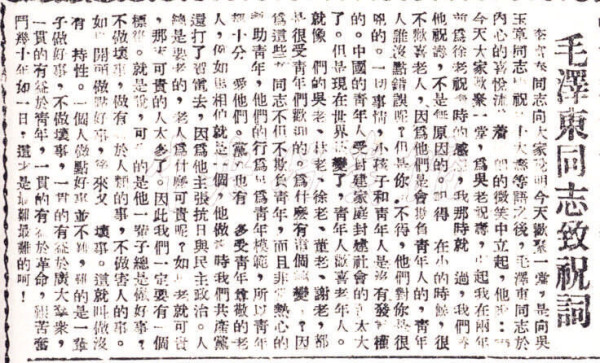 毛澤東同志致祝詞
李富春同志向大家說明今天歡聚一堂，是向吳
玉章同志祝 六十大壽等語之後，毛澤東同志於
內心的喜悅流 着 的微笑中立起，他說：
今天大家歡聚一堂，爲吳老祝壽， 起我在兩年
前爲徐老祝壽時的感 我那時就 過，我們
他祝壽，不是無原因的。 得，在小的時候，很
不歡喜老人，因爲他們是會欺負青年人的，青年
人誰沒點錯誤呢？但是你 不得，他們對你是很
兇的。一切事情，小孩子和青年人是沒有發言權
的。中國的青年人受封建家庭封建社會的 太大
了。但是現在世界 變了 青年人歡喜老年人，
就像 們的吳老、林老、徐老、董老、謝老，都
是很受青年們歡迎的。爲什麼有這個 變？因
爲這些 同志不但不欺負青年，而且非 熱心的
助青年，他們的行爲 爲青年模範，所以青年
十分 愛他們。黨 也有 多受青年尊敬的老
人，例如馬相伯就是一個， 他做 時我們共產黨
還打了 電去，因爲他主張抗日與民主政治。人
總是要老的，老人爲什麼可貴呢？如 老就可貴
，那 可貴的人太多了。因此我們一定要有一個
標準。就是說，可 的是他一輩子總是做好事，
不做壞事，做有 於人類的事，不做害人的事。
如 開頭做點好事， 後來又 壞事。這就叫做沒
有 持性。一個人做點好事並不難，難的是一輩
子做好事，不做壞事，一貫的有益於廣大羣衆，
一貫的有益於青年，一貫的有益於革命，艱苦奮
鬥幾十年如一日，這才是最難最難的呵！